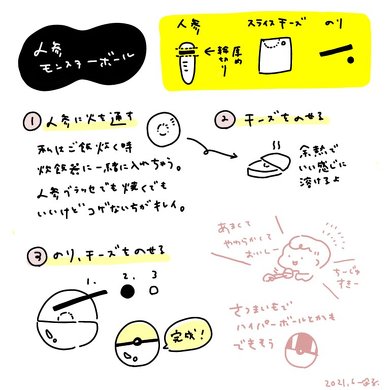 人参
モンスターボール
人参
厚め
輪切り
スライスチーズ
のり
① 人参に火を通す
私はご飯炊く時
炊飯釜に一緒に入れちゃう。
人参グラッセでも焼くでも
いいけどコゲない方がキレイ。
② チーズをのせる
余熱で
いい感じに
溶けるよ
③ のり、チーズをのせる
1. 2. 3
完成!
あまくて
やわらかくて
おいしー
ちーじゅ
すきー
さつまいもで
ハイパーボールとかも
できそう